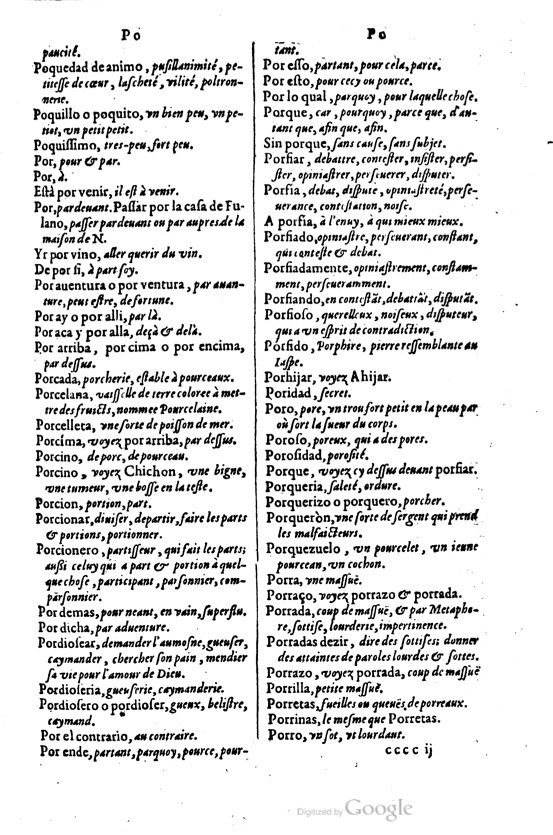 Po
paucité.
Poquedad de animo, pusillanimité, pe-
titesse de cœur, lascheté, vilité, poltron-
nerie.
Poquillo o poquito, vn bien peu, vn pe-
tiot, vn petit petit.
Poquissimo, tres-peu, fort peu.
Por, pour & par.
Por, à.
Està por venir, il est à venir.
Por, pardeuant. Passar por la casa de Fu-
lano, passer pardeuant ou par aupres de la
maison de N.
Yr por vino, aller querir du vin.
De por si, à part soy.
Por auentura o por ventura, par auan-
ture, peut estre, de fortune.
Por ay o por alli, par là.
Por aca y por alla, deçà & delà.
Por arriba, por cima o por encima,
par dessus.
Porcada, porcherie, estable à pourceaux.
Porcelana, vaisselle de terre coloree à met-
tre des fruicts, nommee Pourcelaine.
Porcelleta, vne sorte de poisson de mer.
Porcíma, voyez por arriba, par dessus.
Porcino, de porc, de pourceau.
Porcino, voyez Chichon, vne bigne,
vne tumeur, vne bosse en la teste.
Porcion, portion, part.
Porcionar, diuiser, departir, faire les parts
& portions, portionner.
Porcionero, partisseur, qui fait les parts;
aussi celuy qui a part & portion à quel-
que chose, participant, parsonnier, com-
parsonnier.
Por demas, pour neant, en vain, superflu.
Por dicha, par aduenture.
Pordiosear, demander l'aumosne, gueuser,
caymander, chercher son pain, mendier
sa vie pour l'amour de Dieu.
Pordioseria, gueuserie, caymanderie.
Pordiosero o pordioser, gueux, belistre,
caymand.
Por el contrario, au contraire.
Por ende, partant, parquoy, pource, pour-
Po
tant.
Por esso, partant, pour cela, parce.
Por esto, pour cecy ou pource.
Por lo qual, parquoy, pour laquelle chose.
Porque, car, pourquoy, parce que, d'au-
tant que, afin que, afin.
Sin porque, sans cause, sans subjet.
Porfiar, debattre, contester, insister, persi-
ster, opiniastrer, perseuerer, disputer.
Porfia, debat, dispute, opiniastreté, perse-
uerance, contestation, noise.
A porfia, à l'enuy, à qui mieux mieux.
Porfiado, opiniastre, perseuerant, constant,
qui conteste & debat.
Porfiadamente, opiniastrement, constam-
ment, perseueramment.
Porfiando, en contestāt, debatāt, disputāt.
Porfioso, querelleux, noiseux, disputeur,
qui a vn esprit de contradiction.
Porfido, Porphire, pierre ressemblante au
Iaspe.
Porhijar, voyez Ahijar.
Poridad, secret.
Poro, pore, vn trou fort petit en la peau par
où sort la sueur du corps.
Poroso, poreux, qui a des pores.
Porosidad, porosité.
Porque, voyez cy dessus deuant porfiar.
Porqueria, saleté, ordure.
Porquerizo o porquero, porcher.
Porqueròn, vne sorte de sergent qui prend
les malfaicteurs.
Porquezuelo, vn pourcelet, vn ieune
pourcean, vn cochon.
Porra, vne massuë.
Porraço, voyez porrazo & porrada.
Porrada, coup de massuë, & par Metapho-
re, sottise, lourderie, impertinence.
Porradas dezir, dire des sottises; donner
des attaintes de paroles lourdes & sottes.
Porrazo, voyez porrada, coup de massuë
Porrilla, petite massuë.
Porretas, fueilles ou queuës, de porreaux.
Porrinas, le mesme que Porretas.
Porro, vn sot, vt lourdaut.
cccc ij
Digitized by Google